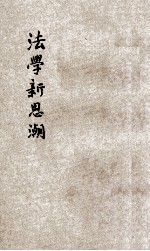 法學新思潮